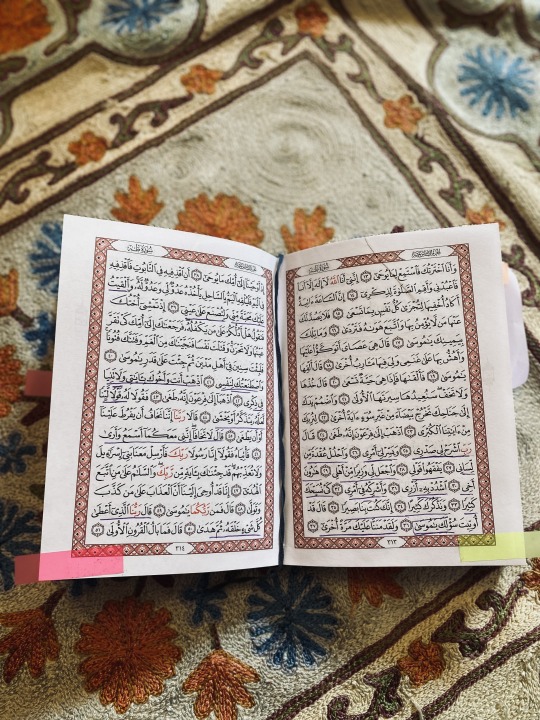 الجزء السادس عشر
سورة طه
وَأَنَا ٱخْتَرْتُكَ فَٱسْتَمِعْ لِمَا يُوحَىٰٓ ١٣ إِنَّنِىٓ أَنَا ٱللَّهُ لَآ إِلَٰهَ إِلَّآ أَنَا۠
فَٱعْبُدْنِى وَأَقِمِ ٱلصَّلَوٰةَ لِذِكْرِىٓ ١٤ إِنَّ ٱلسَّاعَةَ ءَاتِيَةٌ
أَكَادُ أُخْفِيهَا لِتُجْزَىٰ كُلُّ نَفْسٍۭ بِمَا تَسْعَىٰ ١٥ فَلَا يَصُدَّنَّكَ
عَنْهَا مَن لَّا يُؤْمِنُ بِهَا وَٱتَّبَعَ هَوَىٰهُ فَتَرْدَىٰ ١٦ وَمَا تِلْكَ
بِيَمِينِكَ يَٰمُوسَىٰ ١٧ قَالَ هِىَ عَصَاىَ أَتَوَكَّؤُا۟ عَلَيْهَا
وَأَهُشُّ بِهَا عَلَىٰ غَنَمِى وَلِىَ فِيهَا مَـَٔارِبُ أُخْرَىٰ ١٨ قَالَ أَلْقِهَا
يَٰمُوسَىٰ ١٩ فَأَلْقَىٰهَا فَإِذَا هِىَ حَيَّةٌ تَسْعَىٰ ٢٠ قَالَ خُذْهَا
وَلَا تَخَفْ سَنُعِيدُهَا سِيرَتَهَا ٱلْأُولَىٰ ٢١ وَٱضْمُمْ يَدَكَ
إِلَىٰ جَنَاحِكَ تَخْرُجْ بَيْضَآءَ مِنْ غَيْرِ سُوٓءٍ ءَايَةً أُخْرَىٰ ٢٢ لِنُرِيَكَ
مِنْ ءَايَٰتِنَا ٱلْكُبْرَى ٢٣ ٱذْهَبْ إِلَىٰ فِرْعَوْنَ إِنَّهُۥ طَغَىٰ ٢٤ قَالَ رَبِّ
ٱشْرَحْ لِى صَدْرِى ٢٥ وَيَسِّرْ لِىٓ أَمْرِى ٢٦ وَٱحْلُلْ عُقْدَةً مِّن
لِّسَانِى ٢٧ يَفْقَهُوا۟ قَوْلِى ٢٨ وَٱجْعَل لِّى وَزِيرًا مِّنْ أَهْلِى ٢٩ هَٰرُونَ
أَخِى ٣٠ ٱشْدُدْ بِهِۦٓ أَزْرِى ٣١ وَأَشْرِكْهُ فِىٓ أَمْرِى ٣٢ كَىْ نُسَبِّحَكَ
كَثِيرًا ٣٣ وَنَذْكُرَكَ كَثِيرًا ٣٤ إِنَّكَ كُنتَ بِنَا بَصِيرًا ٣٥ قَالَ قَدْ
أُوتِيتَ سُؤْلَكَ يَٰمُوسَىٰ ٣٦ وَلَقَدْ مَنَنَّا عَلَيْكَ مَرَّةً أُخْرَىٰٓ ٣٧
٣١٣
الجزء السادس عشر
سورة طه
إِذْ أَوْحَيْنَآ إِلَىٰٓ أُمِّكَ مَا يُوحَىٰٓ ٣٨ أَنِ ٱقْذِفِيهِ فِى ٱلتَّابُوتِ فَٱقْذِفِيهِ
فِى ٱلْيَمِّ فَلْيُلْقِهِ ٱلْيَمُّ بِٱلسَّاحِلِ يَأْخُذْهُ عَدُوٌّ لِّى وَعَدُوٌّ لَّهُۥ وَأَلْقَيْتُ
عَلَيْكَ مَحَبَّةً مِّنِّى وَلِتُصْنَعَ عَلَىٰ عَيْنِىٓ ٣٩ إِذْ تَمْشِىٓ أُخْتُكَ
فَتَقُولُ هَلْ أَدُلُّكُمْ عَلَىٰ مَن يَكْفُلُهُۥ فَرَجَعْنَٰكَ إِلَىٰٓ أُمِّكَ كَىْ تَقَرَّ
عَيْنُهَا وَلَا تَحْزَنَ وَقَتَلْتَ نَفْسًا فَنَجَّيْنَٰكَ مِنَ ٱلْغَمِّ وَفَتَنَّٰكَ فُتُونًا
فَلَبِثْتَ سِنِينَ فِىٓ أَهْلِ مَدْيَنَ ثُمَّ جِئْتَ عَلَىٰ قَدَرٍ يَٰمُوسَىٰ ٤٠
وَٱصْطَنَعْتُكَ لِنَفْسِى ٤١ ٱذْهَبْ أَنتَ وَأَخُوكَ بِـَٔايَٰتِى وَلَا تَنِيَا
فِى ذِكْرِى ٤٢ ٱذْهَبَآ إِلَىٰ فِرْعَوْنَ إِنَّهُۥ طَغَىٰ ٤٣ فَقُولَا لَهُۥ قَوْلًا لَّيِّنًا
لَّعَلَّهُۥ يَتَذَكَّرُ أَوْ يَخْشَىٰ ٤٤ قَالَا رَبَّنَآ إِنَّنَا نَخَافُ أَن يَفْرُطَ عَلَيْنَآ
أَوْ أَن يَطْغَىٰ ٤٥ قَالَ لَا تَخَافَآ إِنَّنِى مَعَكُمَآ أَسْمَعُ وَأَرَىٰ
٤٦ فَأْتِيَاهُ فَقُولَآ إِنَّا رَسُولَا رَبِّكَ فَأَرْسِلْ مَعَنَا بَنِىٓ إِسْرَٰٓءِيلَ
وَلَا تُعَذِّبْهُمْ قَدْ جِئْنَٰكَ بِـَٔايَةٍ مِّن رَّبِّكَ وَٱلسَّلَٰمُ عَلَىٰ مَنِ ٱتَّبَعَ
ٱلْهُدَىٰٓ ٤٧ إِنَّا قَدْ أُوحِىَ إِلَيْنَآ أَنَّ ٱلْعَذَابَ عَلَىٰ مَن كَذَّبَ
وَتَوَلَّىٰ ٤٨ قَالَ فَمَن رَّبُّكُمَا يَٰمُوسَىٰ ٤٩ قَالَ رَبُّنَا ٱلَّذِىٓ أَعْطَىٰ
كُلَّ شَىْءٍ خَلْقَهُۥ ثُمَّ هَدَىٰ ٥٠ قَالَ فَمَا بَالُ ٱلْقُرُونِ ٱلْأُولَىٰ ٥١
٣١٤